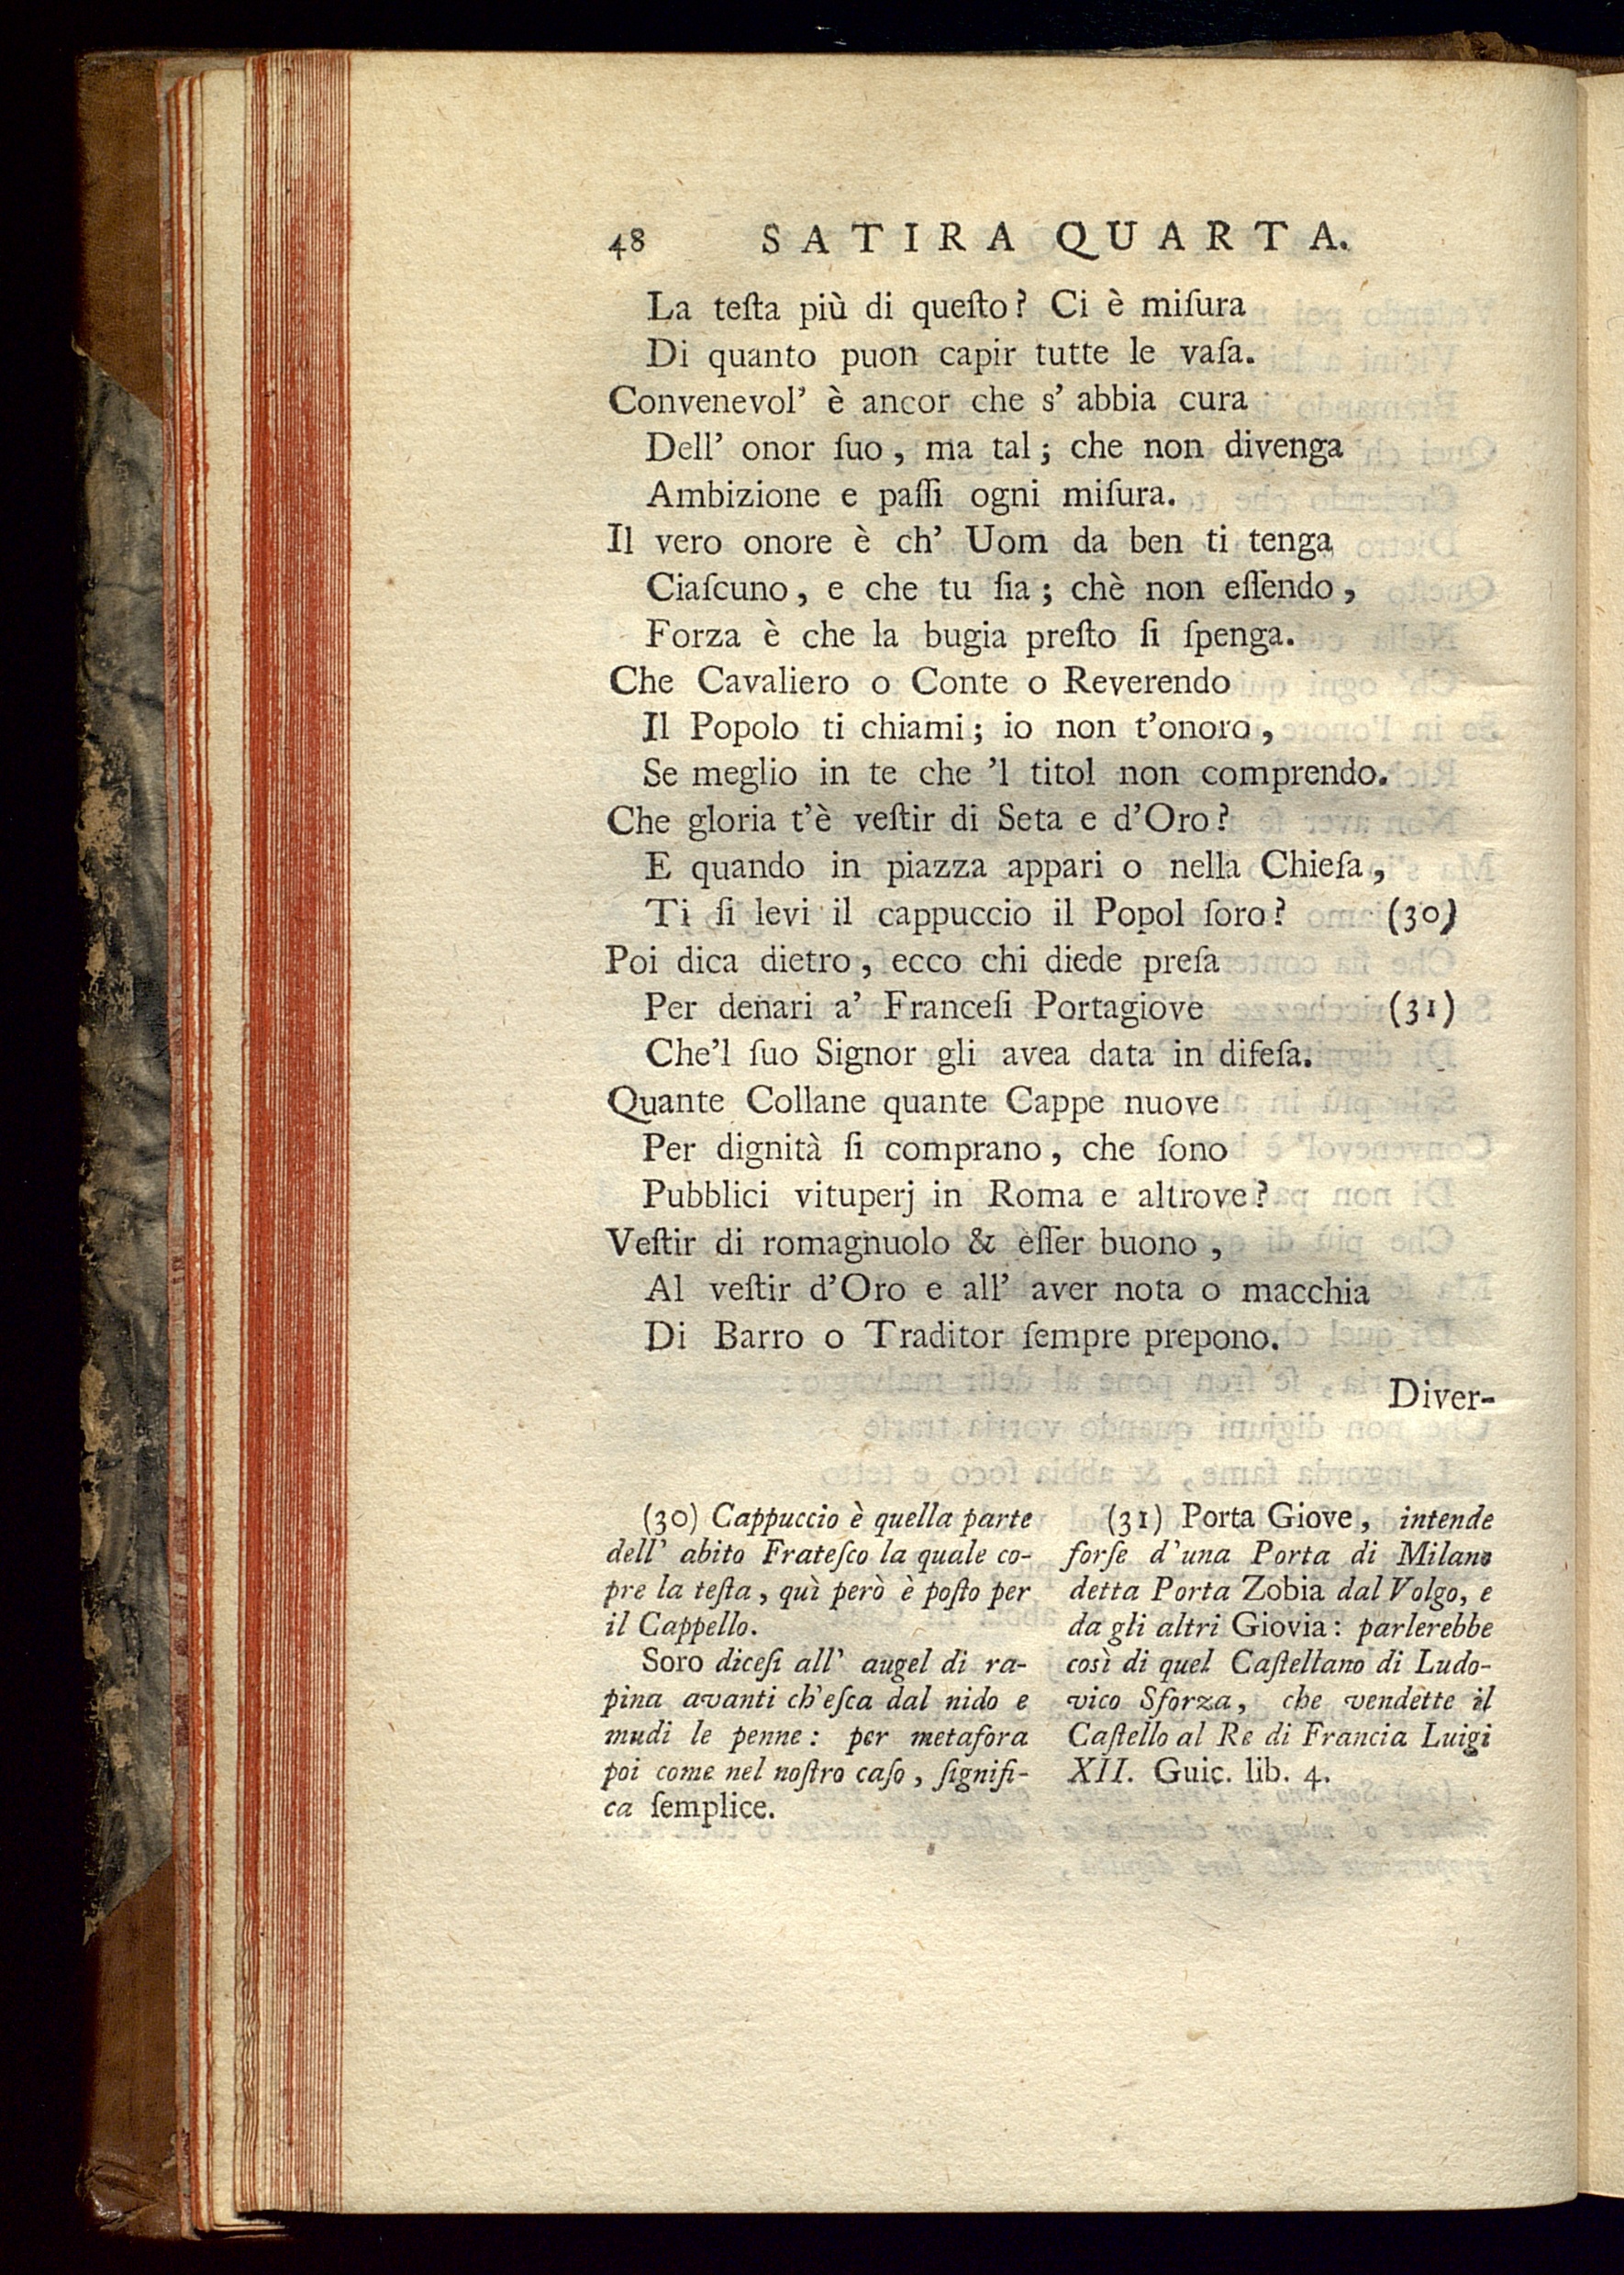 48 SATIRA QUARTA.
La teſta più di queſto? Ci è miſura
Di quanto puon capir tutte le vaſa.
Convenevol' è ancor che s' abbia cura
Dell' onor ſuo, ma tal; che non divenga
Ambizione e paſſi ogni miſura.
Il vero onore è ch' Uom da ben ti tenga
Ciaſcuno, e che tu ſia; chè non eſſendo,
Forza è che la bugia preſto ſi ſpenga.
Che Cavaliero o Conte o Reverendo
Il Popolo ti chiami; io non t'onoro,
Se meglio in te che 'l titol non comprendo.
Che gloria t'è veſtir di Seta e d'Oro?
E quando in piazza appari o nella Chieſa,
Ti ſi levi il cappuccio il Popol ſoro? (30)
Poi dica dietro, ecco chi diede preſa
Per denari a' Franceſi Portagiove (31)
Che'l ſuo Signor gli avea data in difeſa.
Quante Collane quante Cappe nuove
Per dignità ſi comprano, che ſono
Pubblici vituperj in Roma e altrove?
Veſtir di romagnuolo & èſſer buono,
Al veſtir d'Oro e all' aver nota o macchia
Di Barro o Traditor ſempre prepono.
Diver-
(30) Cappuccio è quella parte
dell' abito Frateſco la quale co-
pre la teſta, quì però è poſto per
il Cappello.
Soro diceſi all' augel di ra-
pina avanti ch'eſca dal nido e
mudi le penne: per metafora
poi come nel noſtro caſo, ſignifi-
ca ſemplice.
(31) Porta Giove, intende
forſe d'una Porta di Milano
detta Porta Zobia dal Volgo, e
da gli altri Giovia: parlerebbe
così di quel Caſtellano di Ludo-
vico Sforza, che vendette il
Caſtello al Re di Francia Luigi
XII. Guic. lib. 4.